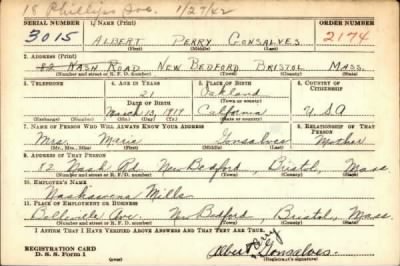 18 Phillips Ave. 1/27/42
SERIAL NUMBER 1. NAME (Print) ORDER NUMBER
3015 ALBERT PERRY GONSALVES 2174
(First) (Middle) (Last)
2. ADDRESS (Print)
82 NASH ROAD NEW BEDFORD BRISTOL MASS.
(Number and street or R. F. D. number) (Town) (County) (State)
3. TELEPHONE 4. AGE IN YEARS 5. PLACE OF BIRTH 6. COUNTRY OF CITIZENSHIP
21 Oakland
DATE OF BIRTH (Town or county)
March 13, 1919 California U.S.A
(Exchange) (Number) (Mo.) (Day) (Yr.) (State or country)
7. NAME OF PERSON WHO WILL ALWAYS KNOW YOUR ADDRESS 8. RELATIONSHIP OF THAT PERSON
Mrs. Maria Gonsalves Mother
(Mr., Mrs., Miss) (First) (Middle) (Last)
9. ADDRESS OF THAT PERSON
82 Nash Rd New Bedford, Bristol, Mass
(Number and street or R. F. D. number) (Town) (County) (State)
10. EMPLOYER'S NAME
Nashawena Mills
11. PLACE OF EMPLOYMENT OR BUSINESS
Belleville Ave. New Bedford, Bristol, Mass.
(Number and street or R. F. D. number) (Town) (County) (State)
I AFFIRM THAT I HAVE VERIFIED ABOVE ANSWERS AND THAT THEY ARE TRUE.
REGISTRATION CARD
D. S. S. Form 1
Albert Perry Gonsalves
(Registrant's signature)